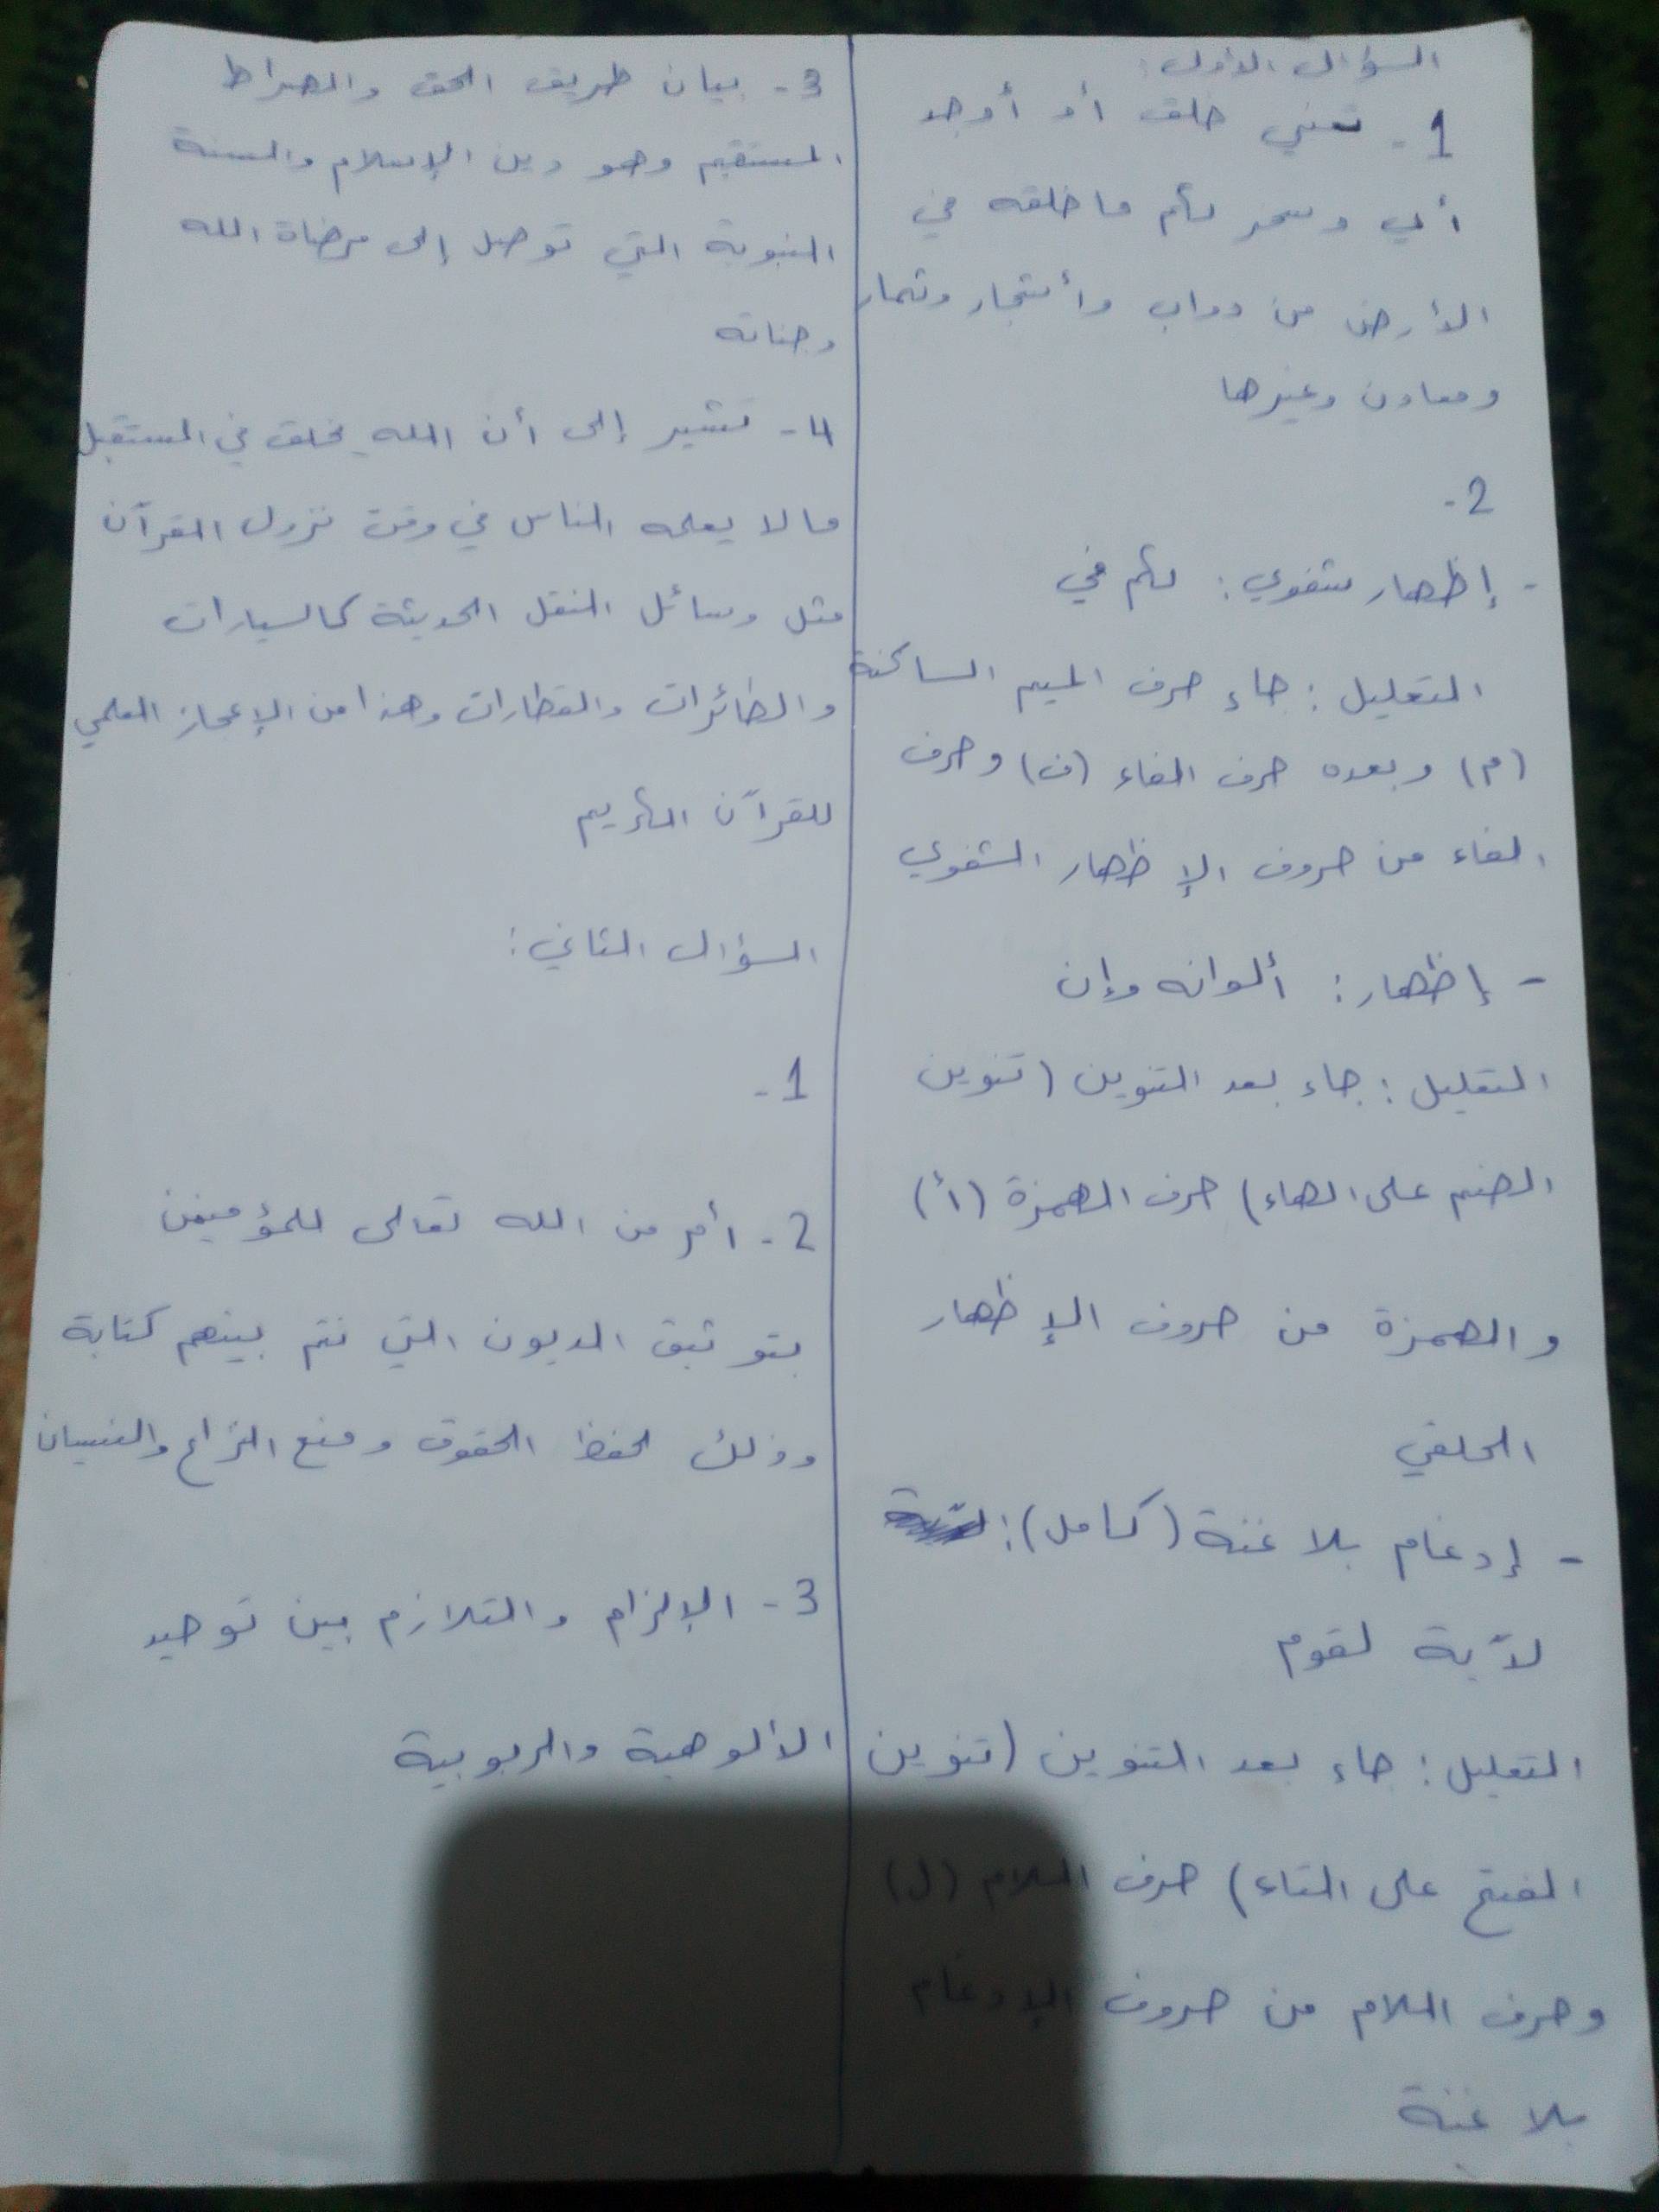 السؤال الأول:
1- تعني خلق أو أوجد
أي وسخر لكم ما خلقه في
الأرض من دواب وأشجار وثمار
ومعادن وغيرها
2-
- إظهار شفوي: لكم في
التعليل: جاء حرف الميم الساكنة
(م) وبعده حرف الفاء (ف) وحرف
الفاء من حروف الإظهار الشفوي
- إظهار: ألوانه وإن
التعليل: جاء بعد التنوين (تنوين
الضم على الهاء) حرف الهمزة (أ)
والهمزة من حروف الإظهار
الحلقي
- إدغام بلا غنة (كامل):
لآية لقوم
التعليل: جاء بعد التنوين (تنوين
الفتح على التاء) حرف اللام (ل)
وحرف اللام من حروف الإدغام
بلا غنة
3- بيان طريق الحق والصراط
المستقيم وهو دين الإسلام والسنة
النبوية التي توصل إلى مرضاة الله
وجناته
4- تشير إلى أن الله يخلق في المستقبل
مالا يعلمه الناس في وقت نزول القرآن
مثل وسائل النقل الحديثة كالسيارات
والطائرات والقطارات وهذا من الإعجاز العلمي
للقرآن الكريم
السؤال الثاني:
1-
2- أمر من الله تعالى للمؤمنين
بتوثيق الديون التي تتم بينهم كتابة
وذلك لحفظ الحقوق ومنع النزاع والنسيان
3- الإلزام والتلازم بين توحيد
الألوهية والربوبية